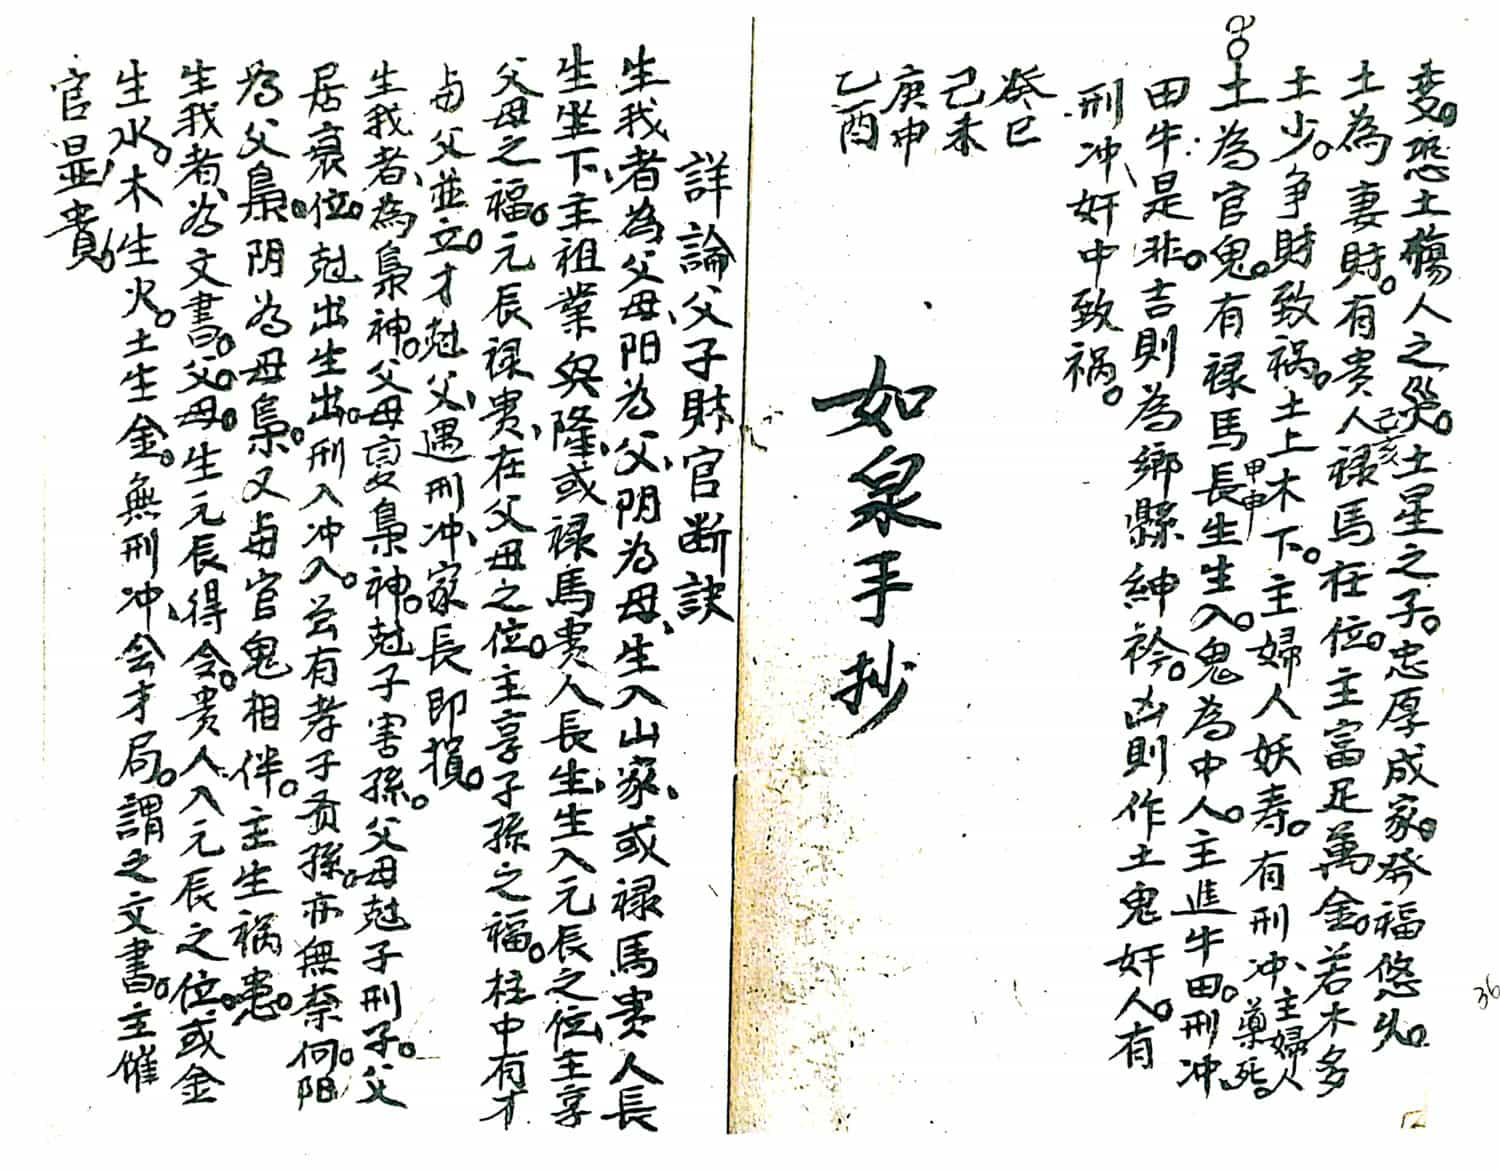 变。恐土殤人之災。土星之子。忠厚成家。發福悠久。
土為妻財。有貴人禄馬在位。主富足萬金。若木多
己亥
土少。争財致祸。土上木下。主婦人妖寿。有刑冲、主婦人藥死。
甲申
土為官鬼。有禄馬長生生入。鬼為中人。主進牛田。刑冲、
田牛是非。吉則為鄉縣紳衿。凶則作土鬼奸人。有
刑冲、奸中致祸。
癸巳
己未
庚申
乙酉
如泉手抄
詳論父子財官断訣
生我者為父母、阳為父、阴為母、生入山家、或禄馬貴人長
生坐下、主祖業興隆、或禄馬貴人長生、生入元辰之位、主享
父母之福。元辰禄貴、在父母之位。主享子孫之福。柱中有才
与父並立。才尅父、遇刑冲、家長即損。
生我者、為梟神。父母变梟神。尅子害孫。父母尅子刑子。父
居衰位。尅出生出。刑入冲入。兰有孝子贤孫。亦無奈何。阳
為父梟。阴為母梟。又与官鬼相伴。主生祸患。
生我者、為文書。父母。生元辰、得令。貴人入元辰之位。或金
生水。木生火。土生金。無刑冲、会才局。謂之文書。主催
官显貴
36